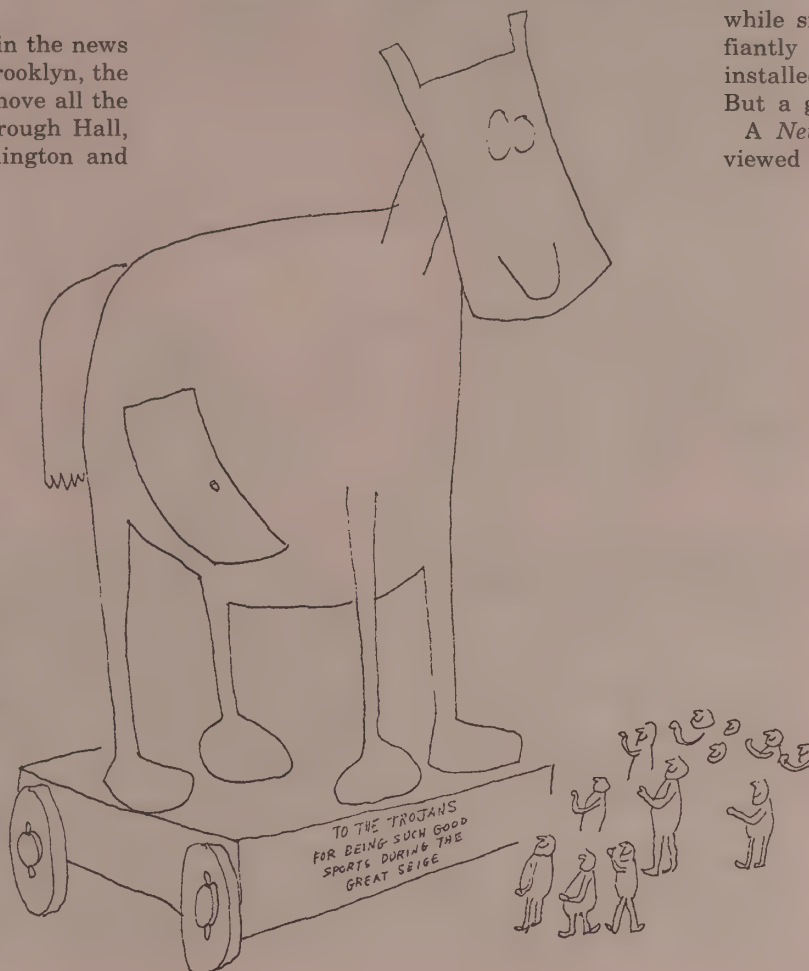 in the news
rooklyn, the
nove all the
rough Hall,
ington and
while si
fiantly
installed
But a g
A Ne
viewed
TO THE TROJANS
FOR BEING SUCH GOOD
SPORTS DURING THE
GREAT SEIGE